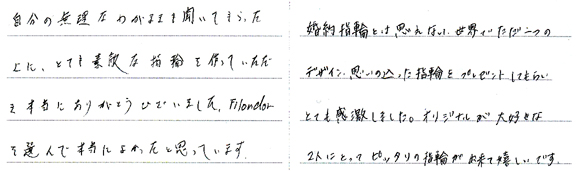 自分の無理なわがままを聞いてもらった
上に、とても素敵な指輪を作っていただ
き本当にありがとうございました。Filondor
を選んで本当によかったと思っています。
婚約指輪とは思えない世界でただ一つの
デザイン、思いの込った指輪をプレゼントしてもらい
とても感激しました。オリジナルが大好きな
2人にとってピッタリの指輪が出来て嬉しいです。